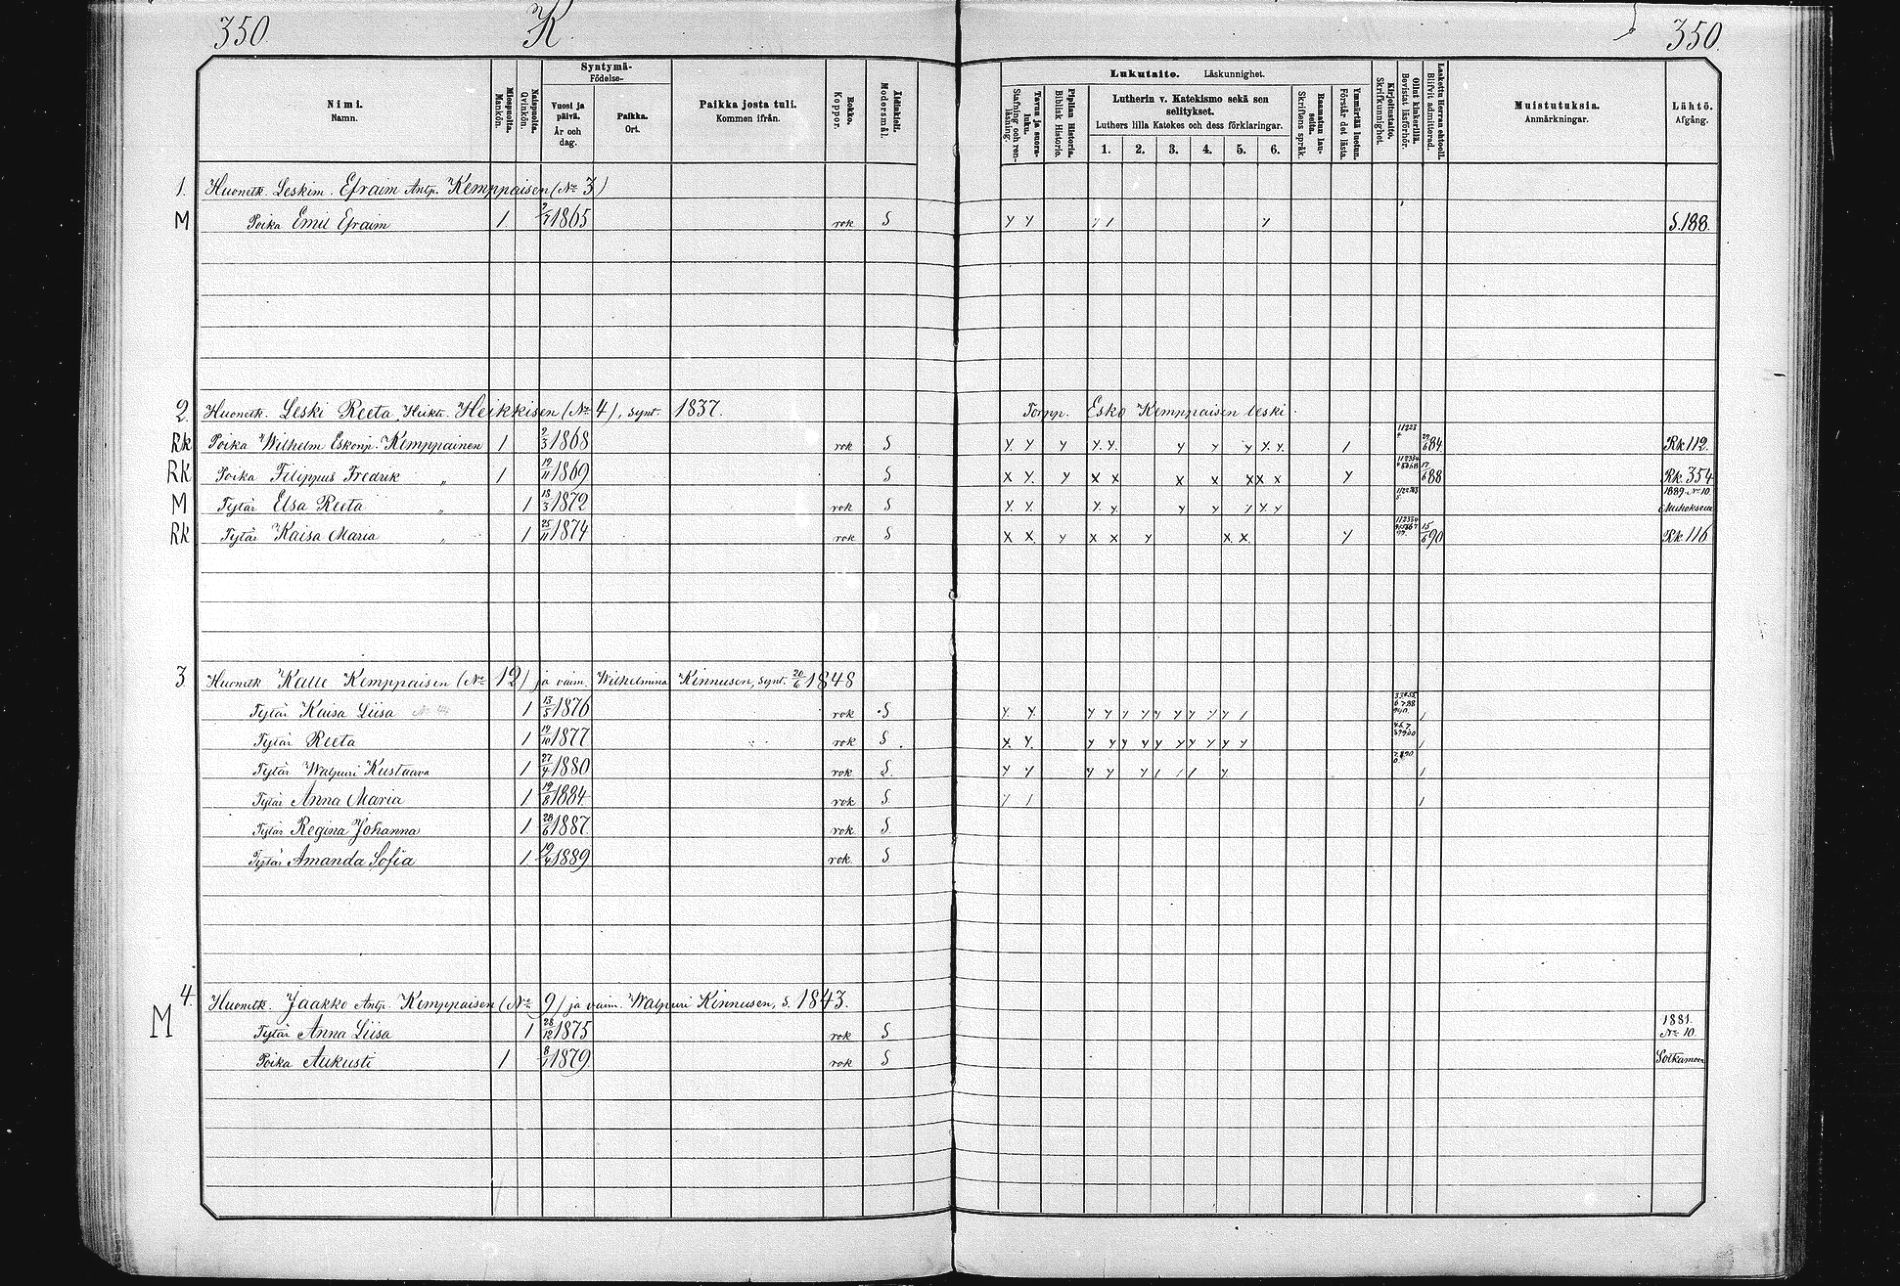 350 K 350
Nimi. Namn. Miespuolia. Mankön. Naispuolia. Qvinkön. Syntymä- Födelse- Vuosi ja päivä. År och dag. Paikka. Ort. Paikka josta tuli. Kommen ifrån. Rokko. Koppor. Äidinkieli. Modersmål. Lukutaito. Läskunnighet. Piplian Historia. Biblisk Historie. Lutherin v. Katekismo sekä sen selitykset. Luthers lilla Katekes och dess förklaringar. 1. 2. 3. 4. 5. 6. Skriftens språk. Ymmärtää luetun. Förstår det lästa. Kirjoitustaito. Skrifkunnighet. Ollut kinkerillä. Bevistat läsförhör. Laskettu Herran ehtool. Blifvit admitterad. Muistutuksia. Anmärkningar. Lähtö. Afgång.
1. Huonetk. Leskim. Efraim Antp. Kemppaisen (No 3)
M Poika Emil Efraim 1 1865 rok S S. 188.
2. Huonetk. Leski Reeta Heikt. Heikkisen (No 4), synt. 1837. Torpp. Esko Kemppaisen leski
Rk Poika Wilhelm Eskonp. Kemppainen 1 2/3 1868 rok S 84. Rk 112.
Rk Poika Filippus Fredrik „ 1 19/11 1869 S 88 Rk. 354
M Tytär Elsa Reeta „ 1 18/3 1872 rok S 1889 No 10
Rk Tytär Kaisa Maria „ 1 25/11 1874 rok S 15/6 90 Rk 116
3 Huonetk Kalle Kemppaisen (No 12) ja vaim. Wilhelmina Kinnusen, synt. 20/6 1848
Tytär Kaisa Liisa 1 13/5 1876 rok S
Tytär Reeta 1 19/10 1877 rok S
Tytär Walpuri Kustaava 1 27/4 1880 rok S.
Tytär Anna Maria 1 19/8 1884 rok S
Tytär Regina Johanna 1 28/6 1887. rok S
Tytär Amanda Sofia 1 19/4 1889 rok. S
4. Huonetk. Jaakko Antp. Kemppaisen (No 9) ja vaim. Walpuri Kinnusen, s. 1843.
M Tytär Anna Liisa 1 28/12 1875 rok S 1881. No 10
Poika Aukusti 1 8/1 1879. rok S Sotkamoon